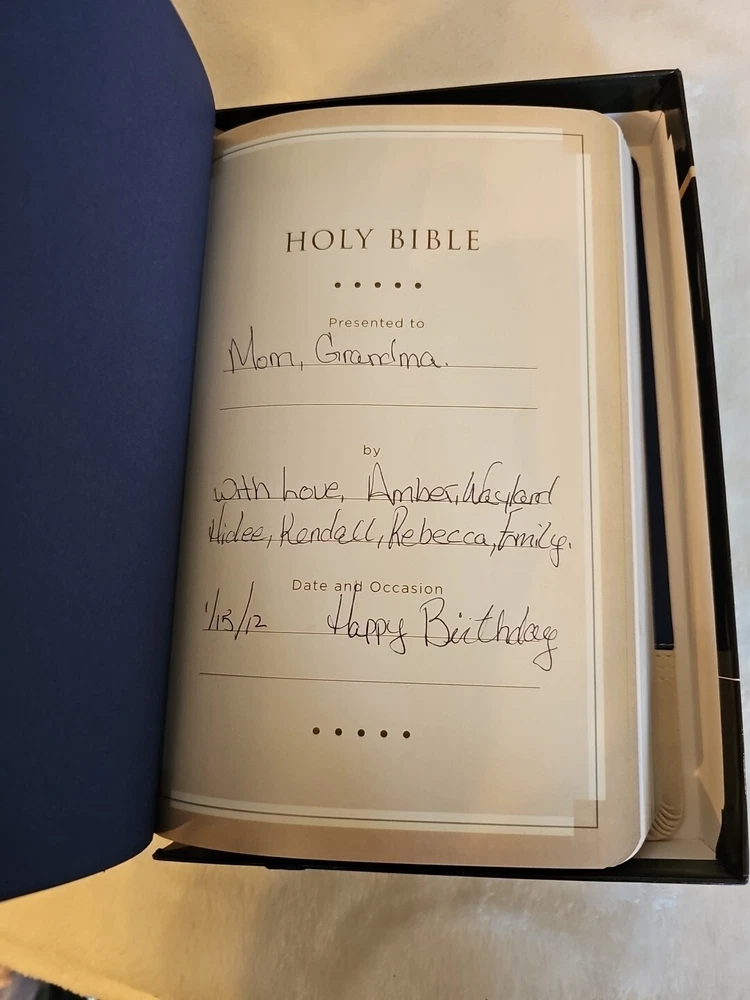 HOLY BIBLE
Presented to
Mom, Grandma.
by
with Love, Amber, Wayland
Hidee, Kendall, Rebecca, Emily.
Date and Occasion
1/13/12 Happy Birthday